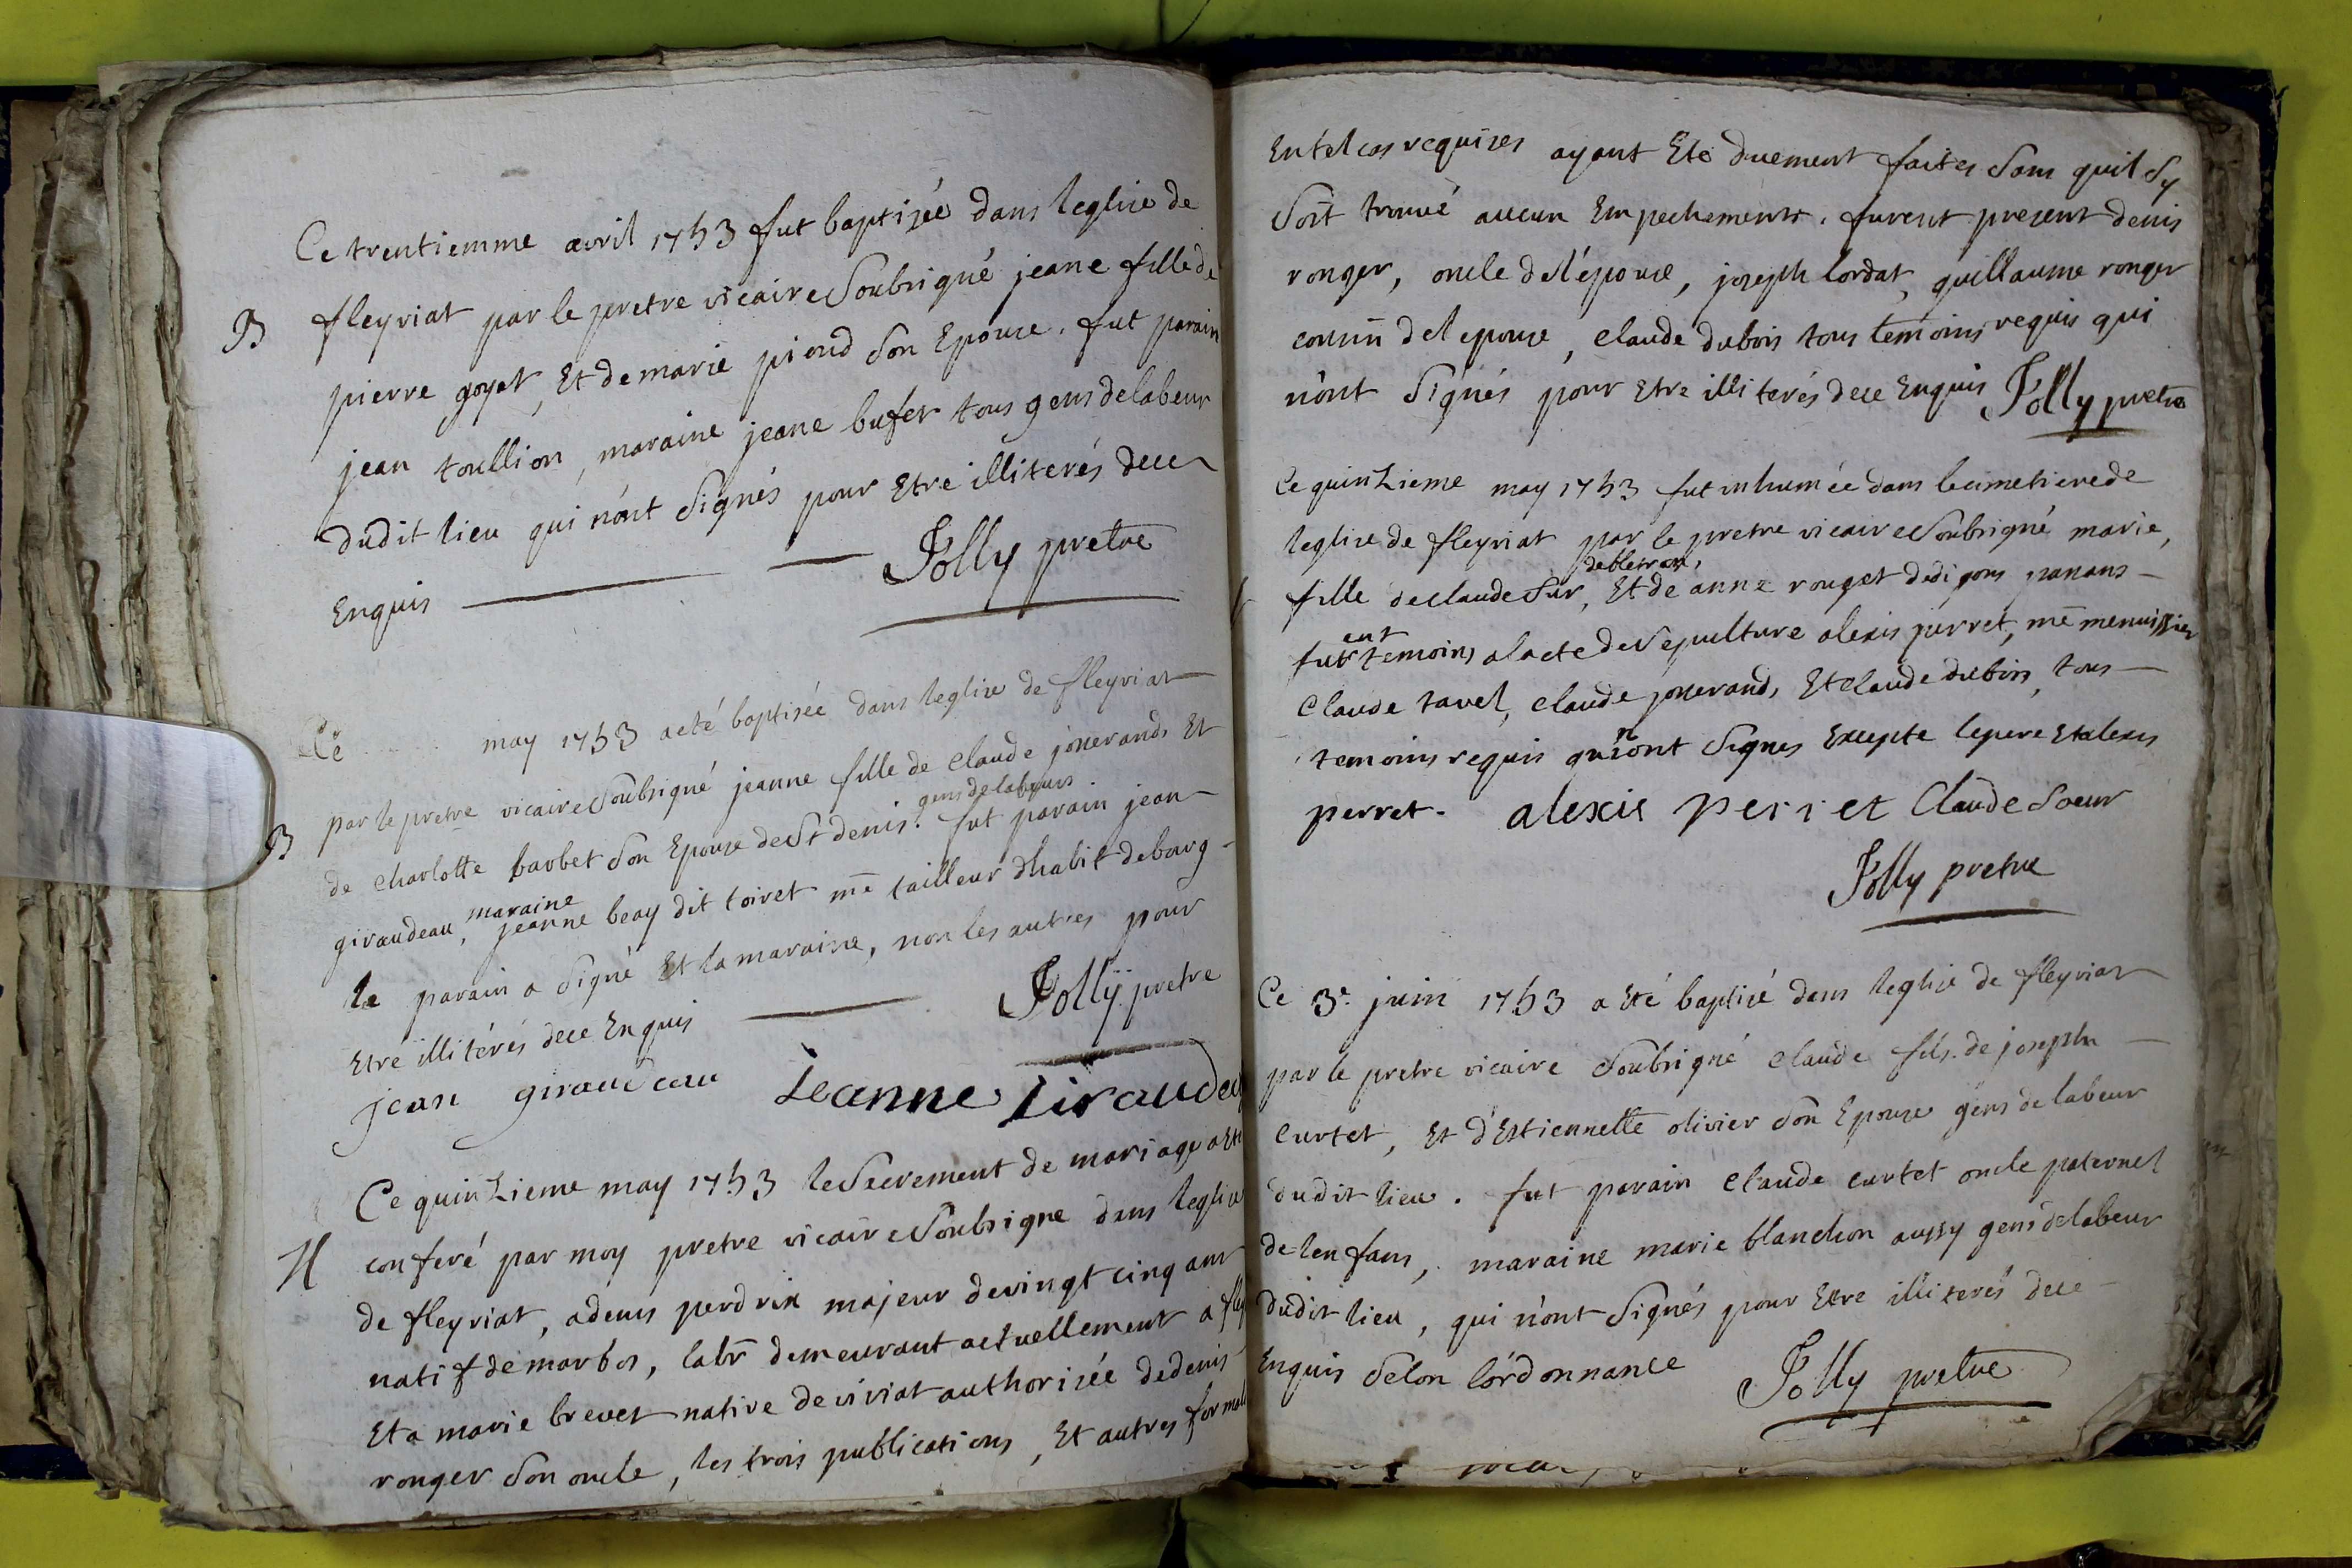 Ce trentiemme avril 1753 fut baptisée dans leglise de
B fleyriat par le pretre vicaire Soubsigné jeane fille de
pierre goyet, Et de marie pioud Son Epouse. fut parain
jean toullion, maraine jeane bufet tous gens de labeur
dudit lieu qui nónt Signés pour Etre illiterés de ce
Enquis Jolly pretre
Ce may 1753 a eté baptisée dans leglise de fleyriat
par le pretre vicaire Soubsigné jeanne fille de Claude josserands Et
gens de labeurs.
B de charlotte barbet Son Epouse de St denis. fut parain jean
maraine
giraudeau, jeanne beay dit toiret me tailleur dhabit de bourg
le parain a Signé Et la maraine, non les autres pour
Etre illitérés de ce Enquis Jolly pretre
jean giraudeau Jeanne Giraudeau
Ce quinZieme may 1753 le Secrement de mariage a Eté
M conferé par moy pretre vicaire Soubsigne dans leglise
de fleyriat, a denis perdrix majeur de vingt cinq ans
natif de marbos, labr demeurant actuellement a fley
Et a marie brevet native de viriat authorisée de denis
ronger Son oncle, les trois publications, Et autres formali
En tel cas requises ayant Eté duement faites Sans quil Sy
Soit trouvé aucun Empechements. furent present denis
ronger, oncle de l'épouse, joseph lordat, guillaume ronger
cousin de l epouse, claude dubois tous temoins requis qui
nónt Signés pour Etre illiterés de ce Enquis Jolly pretre
Ce quinZieme may 1753 fut inhumée dans le cimetiere de
leglise de fleyriat par le pretre vicaire Soubsigné marie,
fille de claude Sur, Et de anne rouget
ent
fut temoins a lacte de Sepulture alexis perret, me menuissier
Claude tavel, claude josserand, Et claude dubois, tous
n
temoins requis qui ont Signes Excepte le pere Et alexis
perret. alexis perret Claude Soeur
Jolly pretre
Ce 3e. juin 1753 a Eté baptisé dans leglise de fleyriat
par le pretre vicaire Soubsigné claude fils de joseph
curtet, Et d'Estiennette olivier Son Epouse gens de labeur
dudit lieu. fut parain claude curtet oncle paternel
de lenfans, maraine marie blanchon aussy gens de labeur
dudit lieu, qui nónt Signés pour Etre illiterés de ce
Enquis Selon lórdonnance Jolly pretre